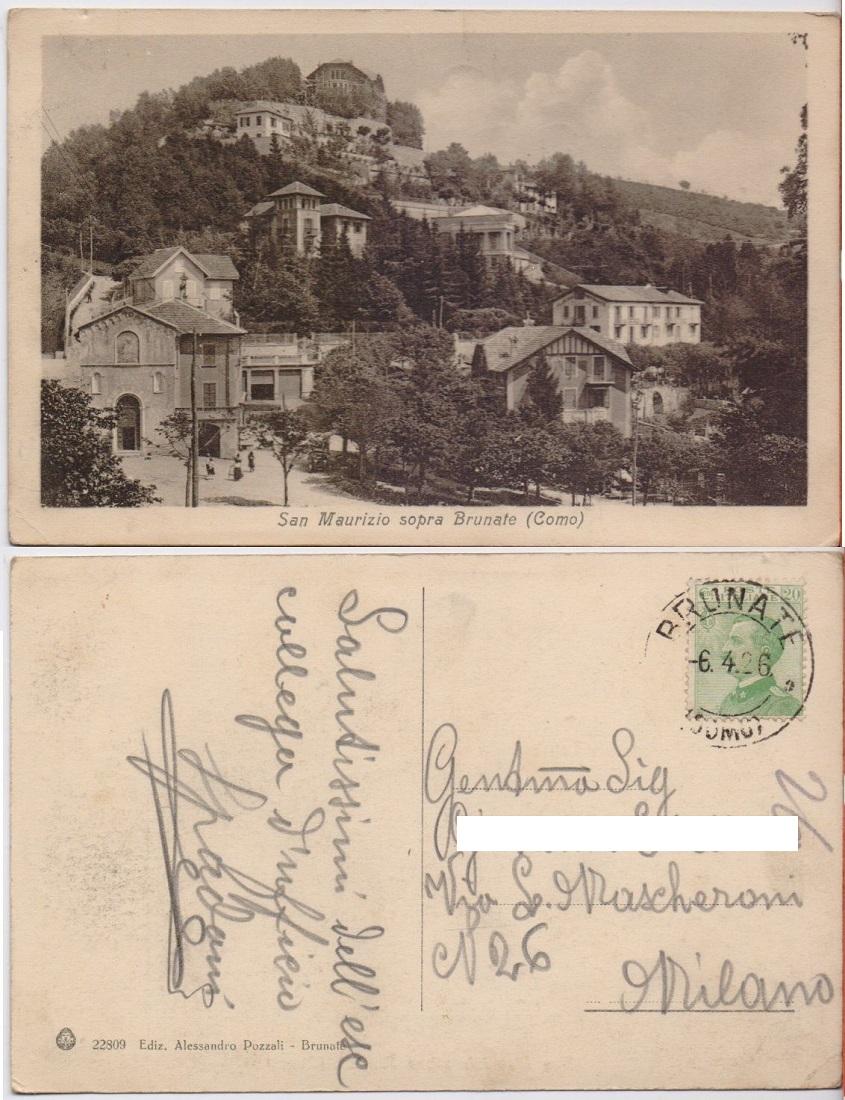 San Maurizio sopra Brunate (Como)
20
BRUNATE
-6.4.26
(COMO)
Salutissimi dell'ex
collega d'ufficio
Gentma Sig
Via L. Mascheroni
N 26
Milano
22809 Ediz. Alessandro Pozzali - Brunate